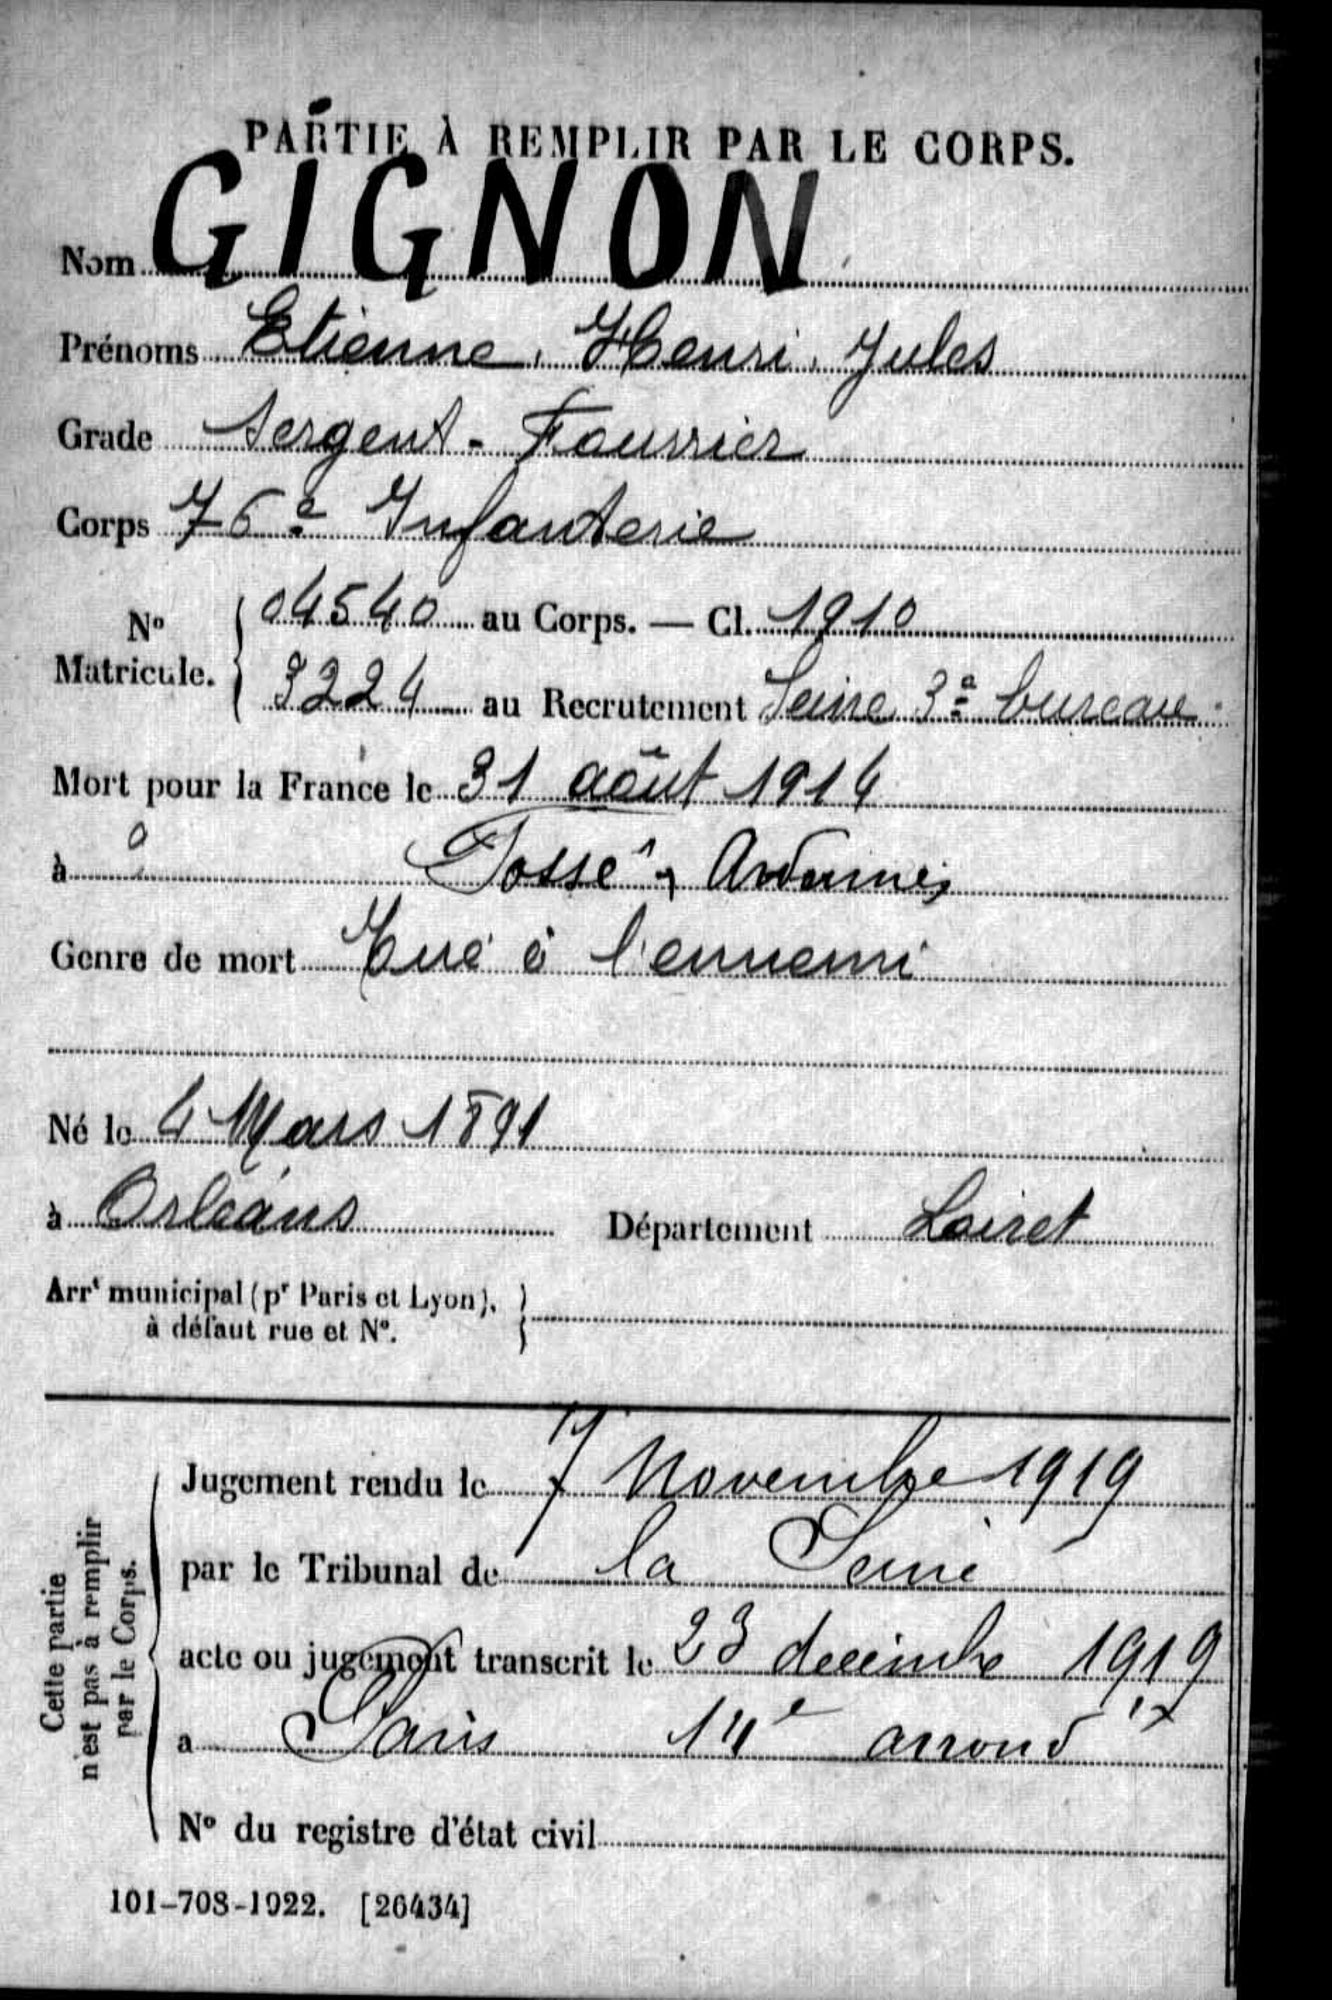 PARTIE À REMPLIR PAR LE CORPS.
Nom GIGNON
Prénoms Etienne, Henri, Jules
Grade Sergent-Fourrier
Corps 76e Infanterie
No Matricule. 04540 au Corps. — Cl. 1910
3224 au Recrutement Seine 3e bureau
Mort pour la France le 31 août 1914
à Fossé, Ardennes
Genre de mort Tué à l'ennemi
Né le 4 Mars 1891
à Orléans Département Loiret
Arrt municipal (pr Paris et Lyon),
à défaut rue et No.
Cette partie
n'est pas à remplir
par le Corps.
Jugement rendu le 7 Novembre 1919
par le Tribunal de la Seine
acte ou jugement transcrit le 23 décembre 1919
a Paris 14e arrondt
No du registre d'état civil
101-708-1922. [26434]